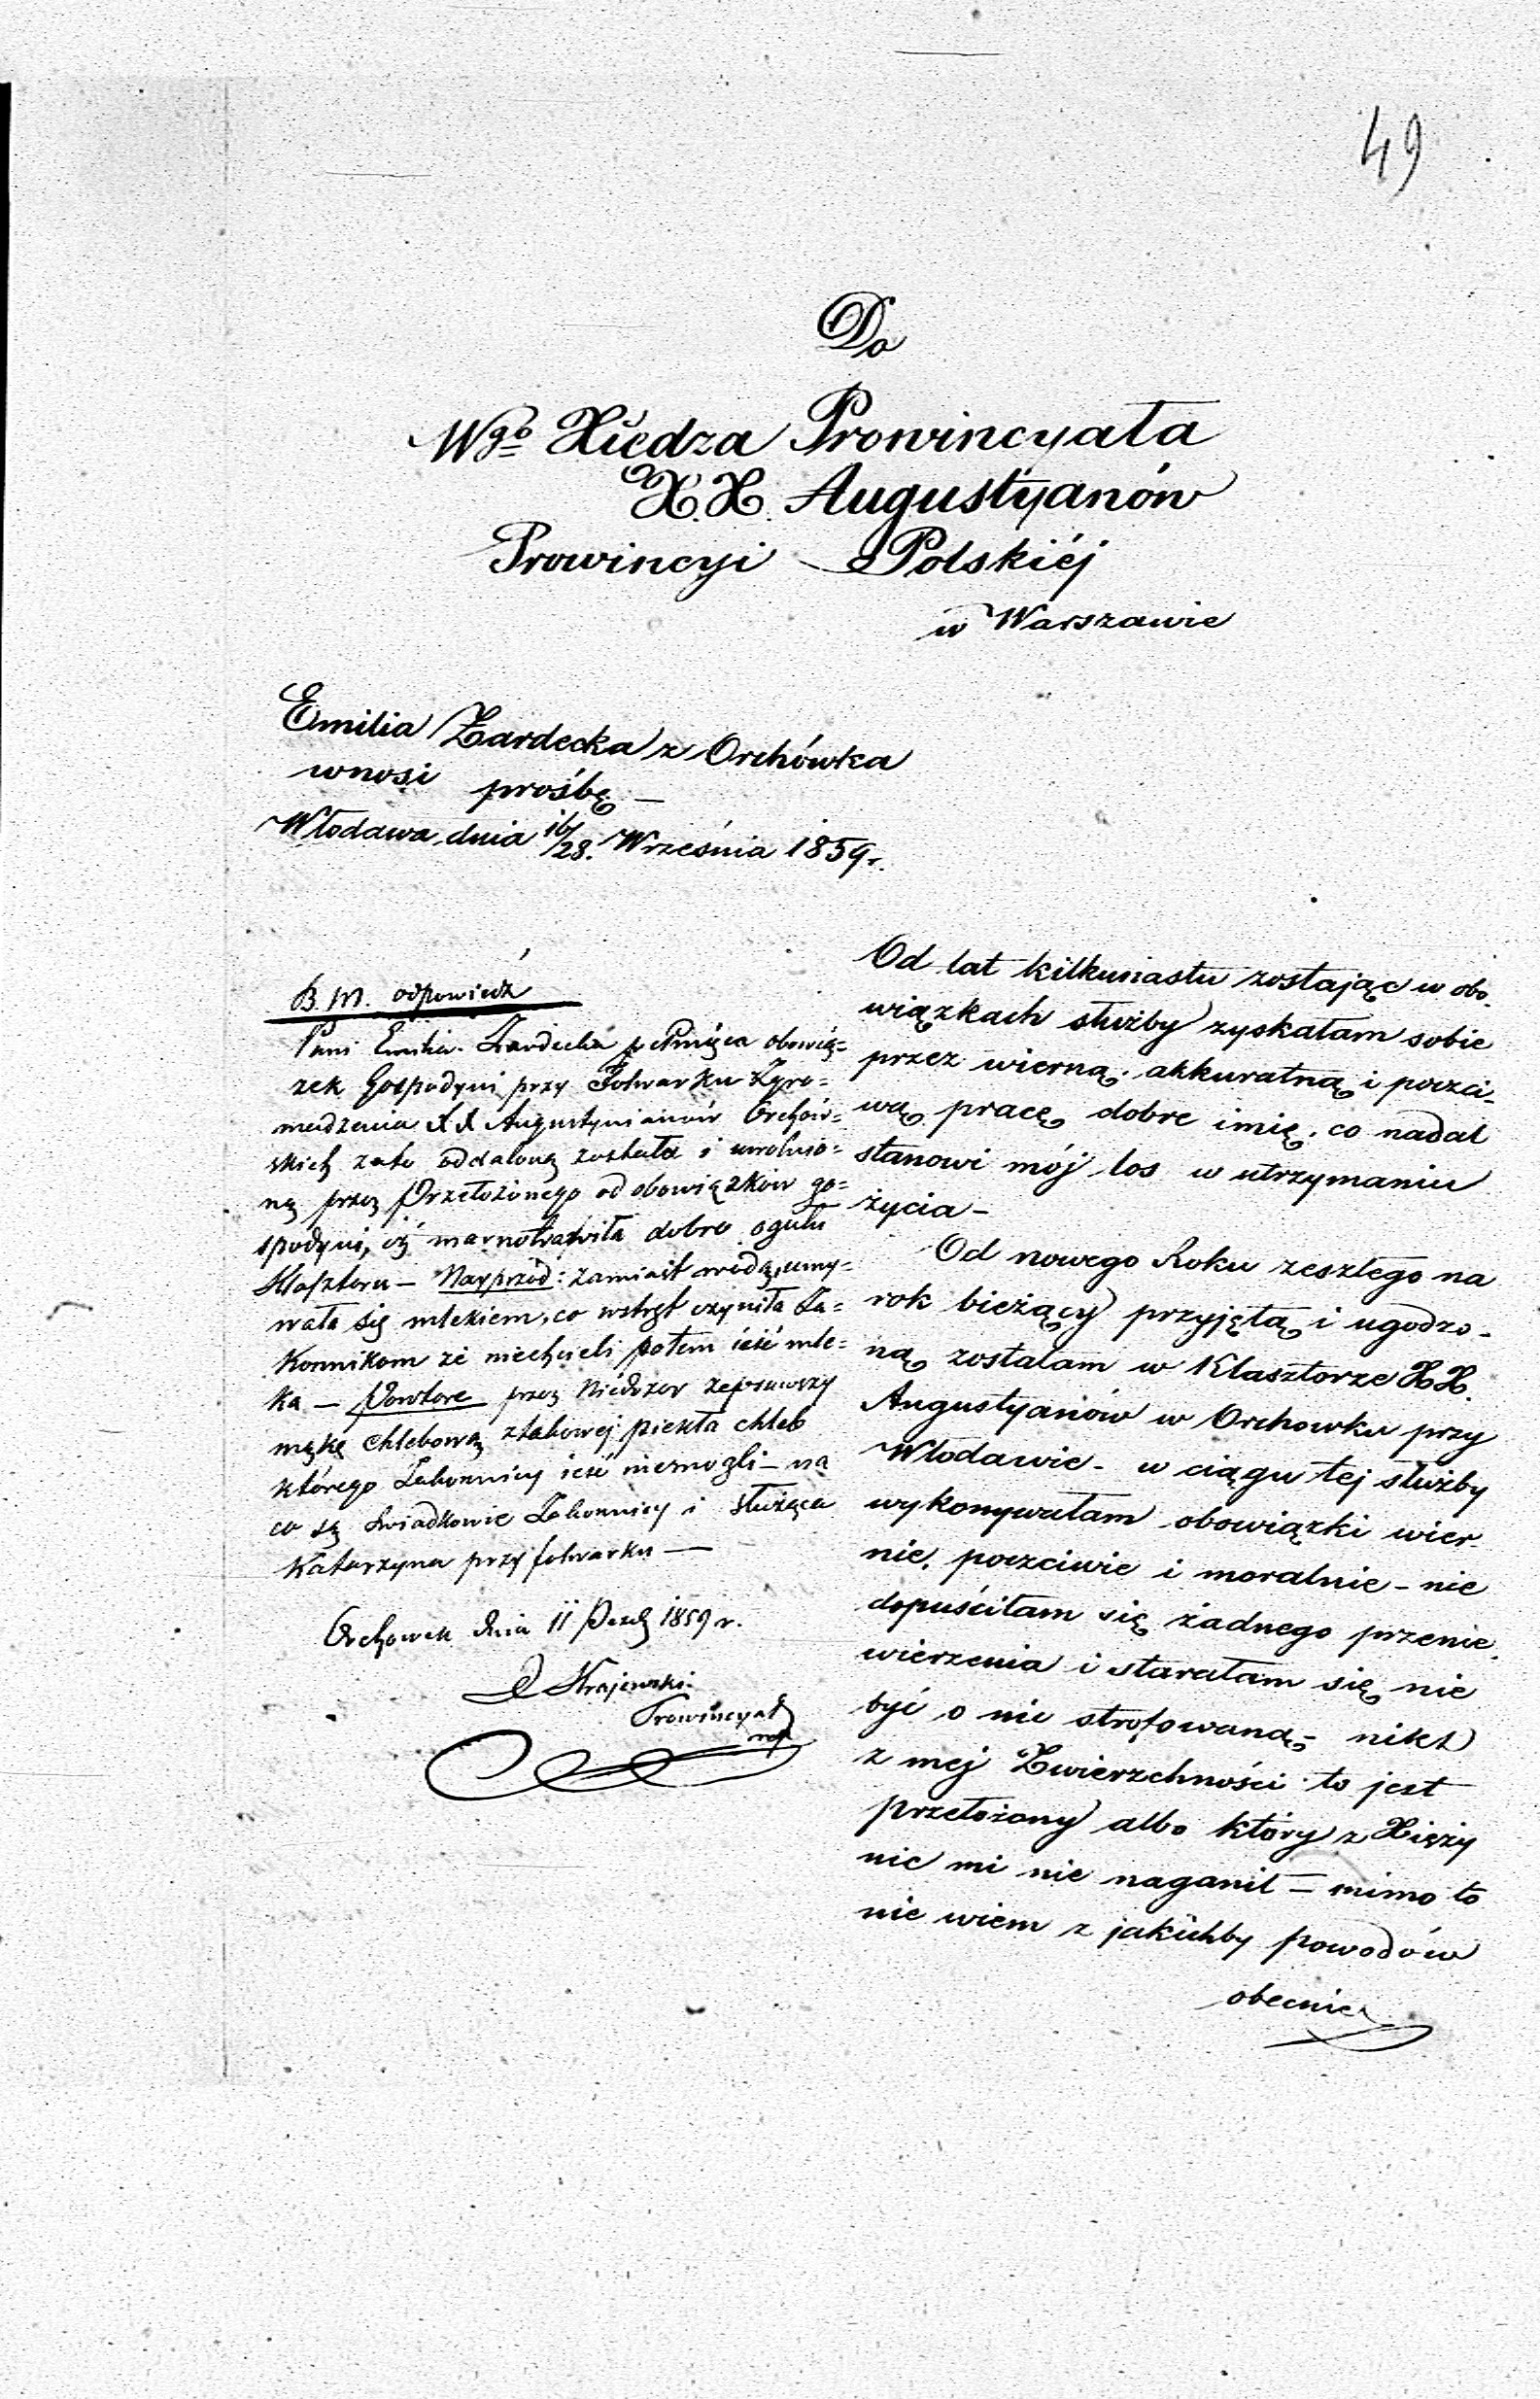 49
Do
Wgo Xiędza Prowincyała
X.X. Augustyanów
Prowincyi Polskiéj
w Warszawie
Emilia Żardecka z Orchówka
wnosi prośbę —
Włodawa dnia 16/28. Września 1859 r.
B. M. odpowiedź
Pani Emilia Żardecka pełniąca obowią=
zek Gospodyni przy Folwarku Zgro=
madzenia XX Augustynianów Orchow=
skich zato oddaloną została i uwolnio=
ną przez Przełożonego od obowiązków go=
spodyni, iż marnotrawiła dobro ogułu
Klasztoru — Nayprzód: zamiast wodą, umy=
wała się mlekiem, co wstręt czyniła Za=
konnikom że niechcieli potem ieść mle=
ka — Powtore przez Niedozor zepsuwszy
mąkę chlebową z takowej piekła chleb
którego Zakonnicy ieść niemogli — na
co są świadkowie Zakonnicy i służąca
Katarzyna przy folwarku —
Orchowek dnia 11 Paźd 1859 r.
Krajewski
Prowincyał
mp
Od lat kilkunastu zostając w obo-
wiązkach służby zyskałam sobie
przez wierną, akkuratną i poczci-
wą pracę dobre imię, co nadal
stanowi mój los w utrzymaniu
życia —
Od nowego Roku zeszłego na
rok bieżący przyjętą i ugodzo-
ną zostałam w Klasztorze XX.
Augustyanów w Orchowku przy
Włodawie — w ciągu tej służby
wykonywałam obowiązki wier-
nie, poczciwie i moralnie — nie
dopuściłam się żadnego przenie-
wierzenia i starałam się nie
być o nic strofowaną — nikt
z mej Zwierzchności to jest
przełożony albo który z Xięży
nic mi nie naganił — mimo to
nie wiem z jakichby powodów
obecnie